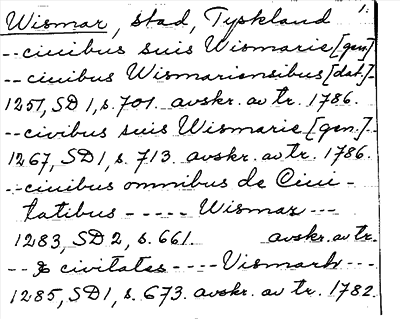 1.
Wismar, stad, Tyskland
-- ciuibus suis Wismarie [gen.]
-- ciuibus Wismariensibus [dat.]
1251, SD 1, s. 701. avskr. av tr. 1786.
-- civibus suis Wismarie [gen.].
1267, SD 1, s. 713. avskr. av tr. 1786.
-- ciuibus omnibus de Ciui-
tatibus ----- Wismar ---
1283, SD 2, s. 661. avskr. av tr.
-- & civitates ---- Vismarh ---
1285, SD 1, s. 673. avskr. av tr. 1782.